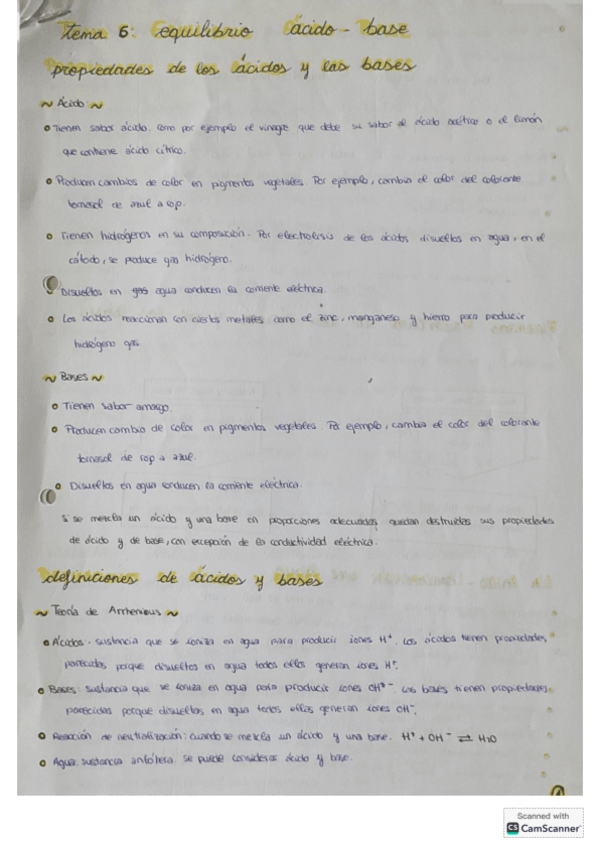 tema 6: equilibrio ácido - base
propiedades de los ácidos y las bases
~ Ácido: ~
Tienen sabor ácido, como por ejemplo el vinagre que debe su sabor al ácido acético o el limón
que contiene ácido cítrico.
Producen cambios de color en pigmentos vegetales. Por ejemplo, cambia el color del colorante
tornasol de azul a rojo.
Tienen hidrógenos en su composición. Por electrolisis de los ácidos disueltos en agua, en el
cátodo, se produce gas hidrógeno.
Disueltos en gas agua conducen la corriente eléctrica.
Los ácidos reaccionan con ciertos metales como el zinc, manganeso y hierro para producir
hidrógeno gas.
~ Bases ~
Tienen sabor amargo.
Producen cambio de color en pigmentos vegetales. Por ejemplo, cambia el color del colorante
tornasol de rojo a azul.
Disueltos en agua conducen la corriente eléctrica.
Si se mezcla un ácido y una base en proporciones adecuadas, quedan destruidas sus propiedades
de ácido y de base, con excepción de la conductividad eléctrica.
definiciones de ácidos y bases
~ Teoría de Arrhenious ~
Ácidos: sustancia que se ioniza en agua para producir iones H⁺. Los ácidos tienen propiedades
parecidas porque disueltos en agua todos ellos generan iones H⁺.
Bases: sustancia que se ioniza en agua para producir iones OH⁻. Las bases tienen propiedades
parecidas porque disueltos en agua todos ellas generan iones OH⁻.
Reacción de neutralización: cuando se mezcla un ácido y una base. H⁺ + OH⁻ ⇌ H₂O
Agua: sustancia anfótera. se puede considerar ácido y base.
1
Scanned with
CS CamScanner